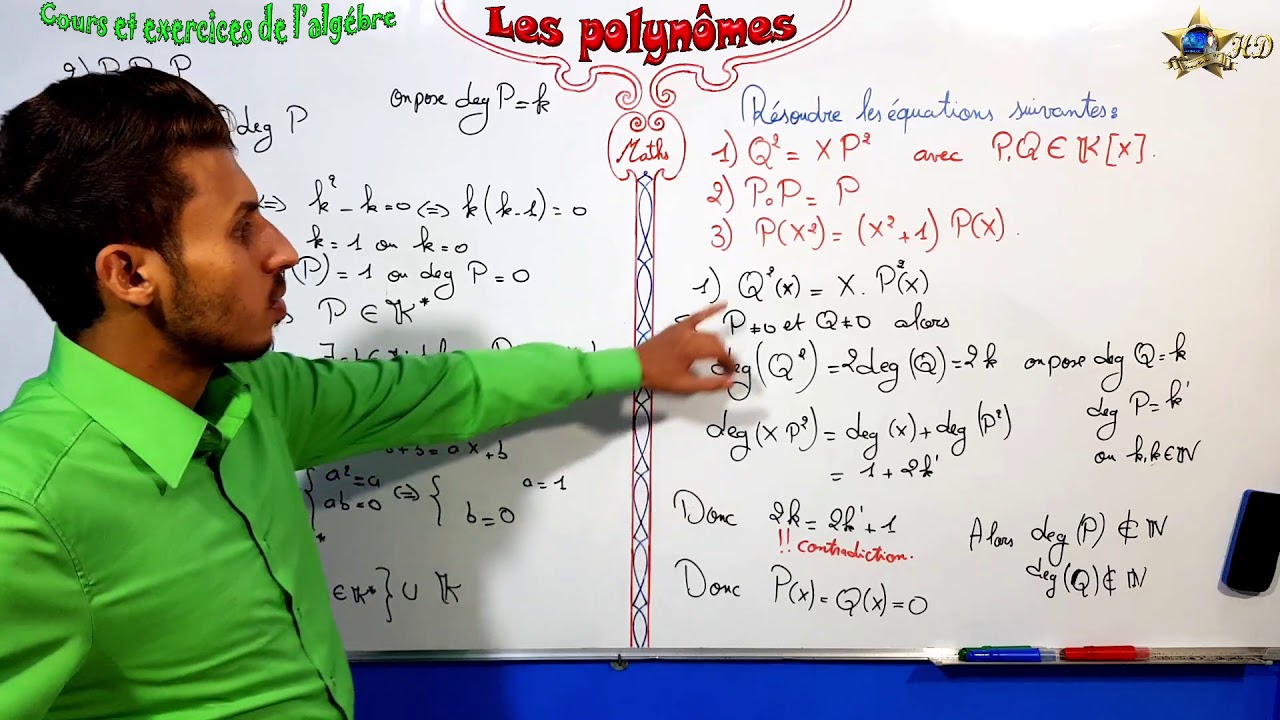 Cours et exercices de l'algébre
Les polynômes
HD
Maths
2) P∘P = P
deg P
on pose deg P = k
⇔ k² - k = 0 ⇔ k(k-1) = 0
k = 1 ou k = 0
(P) = 1 ou deg P = 0
P ∈ K*
= ax + b
{ a² = a
ab = 0 ⇔ {
a = 1
b = 0
∈ K* } ∪ K
Résoudre les équations suivantes :
1) Q² = X P² avec P, Q ∈ K[X].
2) P∘P = P
3) P(X²) = (X² + 1) P(X).
1) Q²(x) = X. P²(x)
P ≠ 0 et Q ≠ 0 alors
deg(Q²) = 2deg(Q) = 2k on pose deg Q = k
deg P = k'
deg(X P²) = deg(x) + deg(P²)
ou k, k' ∈ N
= 1 + 2k'
Donc 2k = 2k' + 1
!! contradiction.
Alors deg(P) ∉ N
deg(Q) ∉ N
Donc P(x) = Q(x) = 0